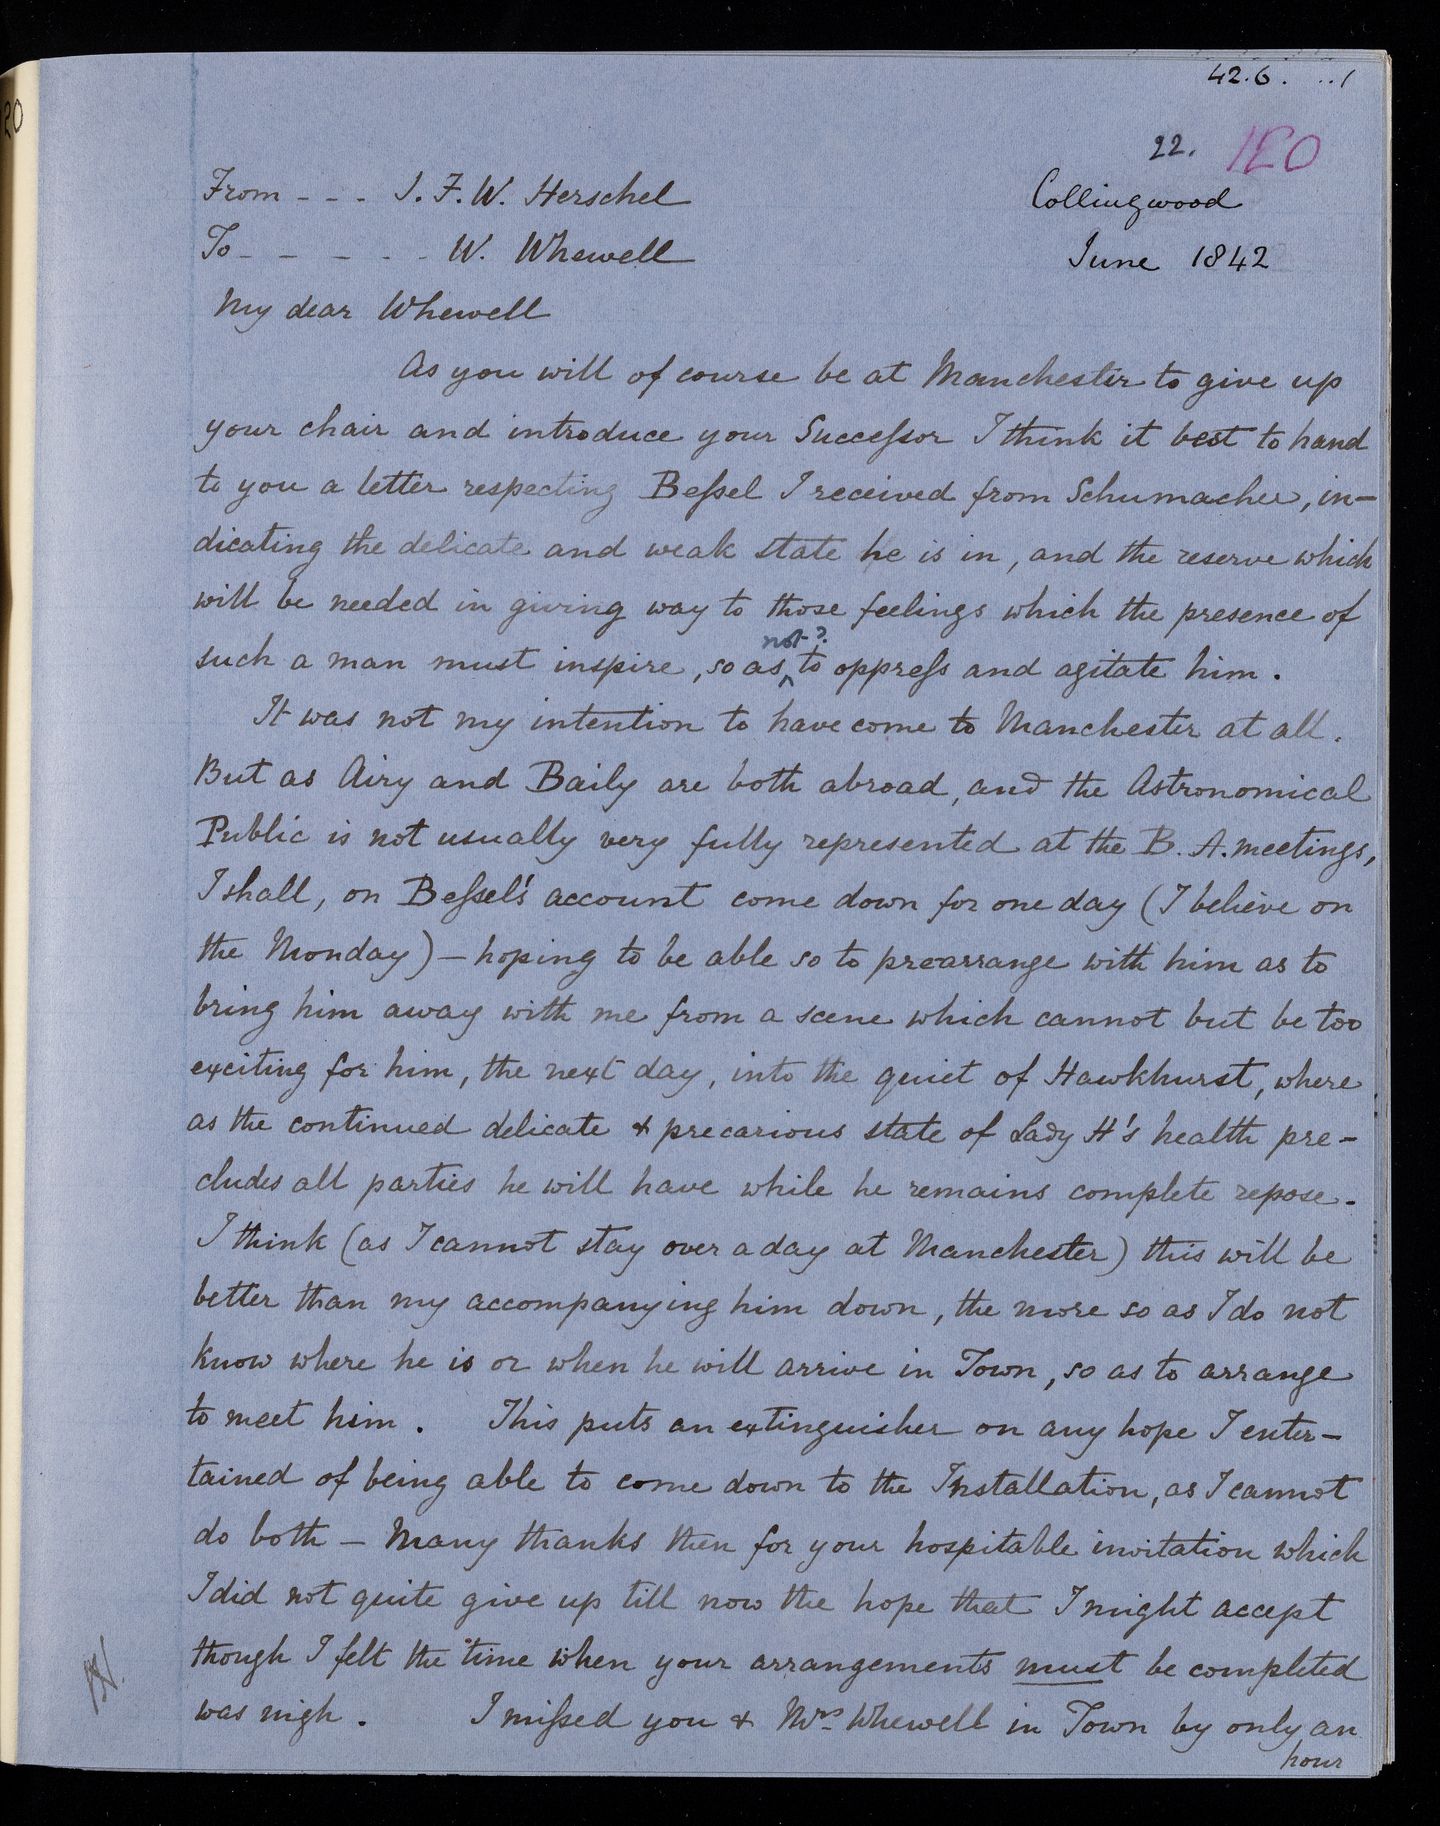 42.6. ..1
22. 120
From - - - J. F. W. Herschel
Collingwood
To - - - - - W. Whewell
June 1842
My dear Whewell
As you will of course be at Manchester to give up
your chair and introduce your Succeſsor I think it best to hand
to you a letter respecting Beſsel I received from Schumacher, in-
dicating the delicate and weak state he is in, and the reserve which
will be needed in giving way to those feelings which the presence of
not?
such a man must inspire, so as ‸ to oppreſs and agitate him.
It was not my intention to have come to Manchester at all.
But as Airy and Baily are both abroad, and the Astronomical
Public is not usually very fully represented at the B. A. meetings,
I shall, on Beſsel's account come down for one day (I believe on
the Monday) — hoping to be able so to prearrange with him as to
bring him away with me from a scene which cannot but be too
exciting for him, the next day, into the quiet of Hawkhurst, where
as the continued delicate & precarious state of Lady H's health pre-
cludes all parties he will have while he remains complete repose.
I think (as I cannot stay over a day at Manchester) this will be
better than my accompanying him down, the more so as I do not
know where he is or when he will arrive in Town, so as to arrange
to meet him. This puts an extinguisher on any hope I enter-
tained of being able to come down to the Installation, as I cannot
do both — Many thanks then for your hospitable invitation which
I did not quite give up till now the hope that I might accept
though I felt the time when your arrangements must be completed
was nigh. I miſsed you & Mrs Whewell in Town by only an
hour